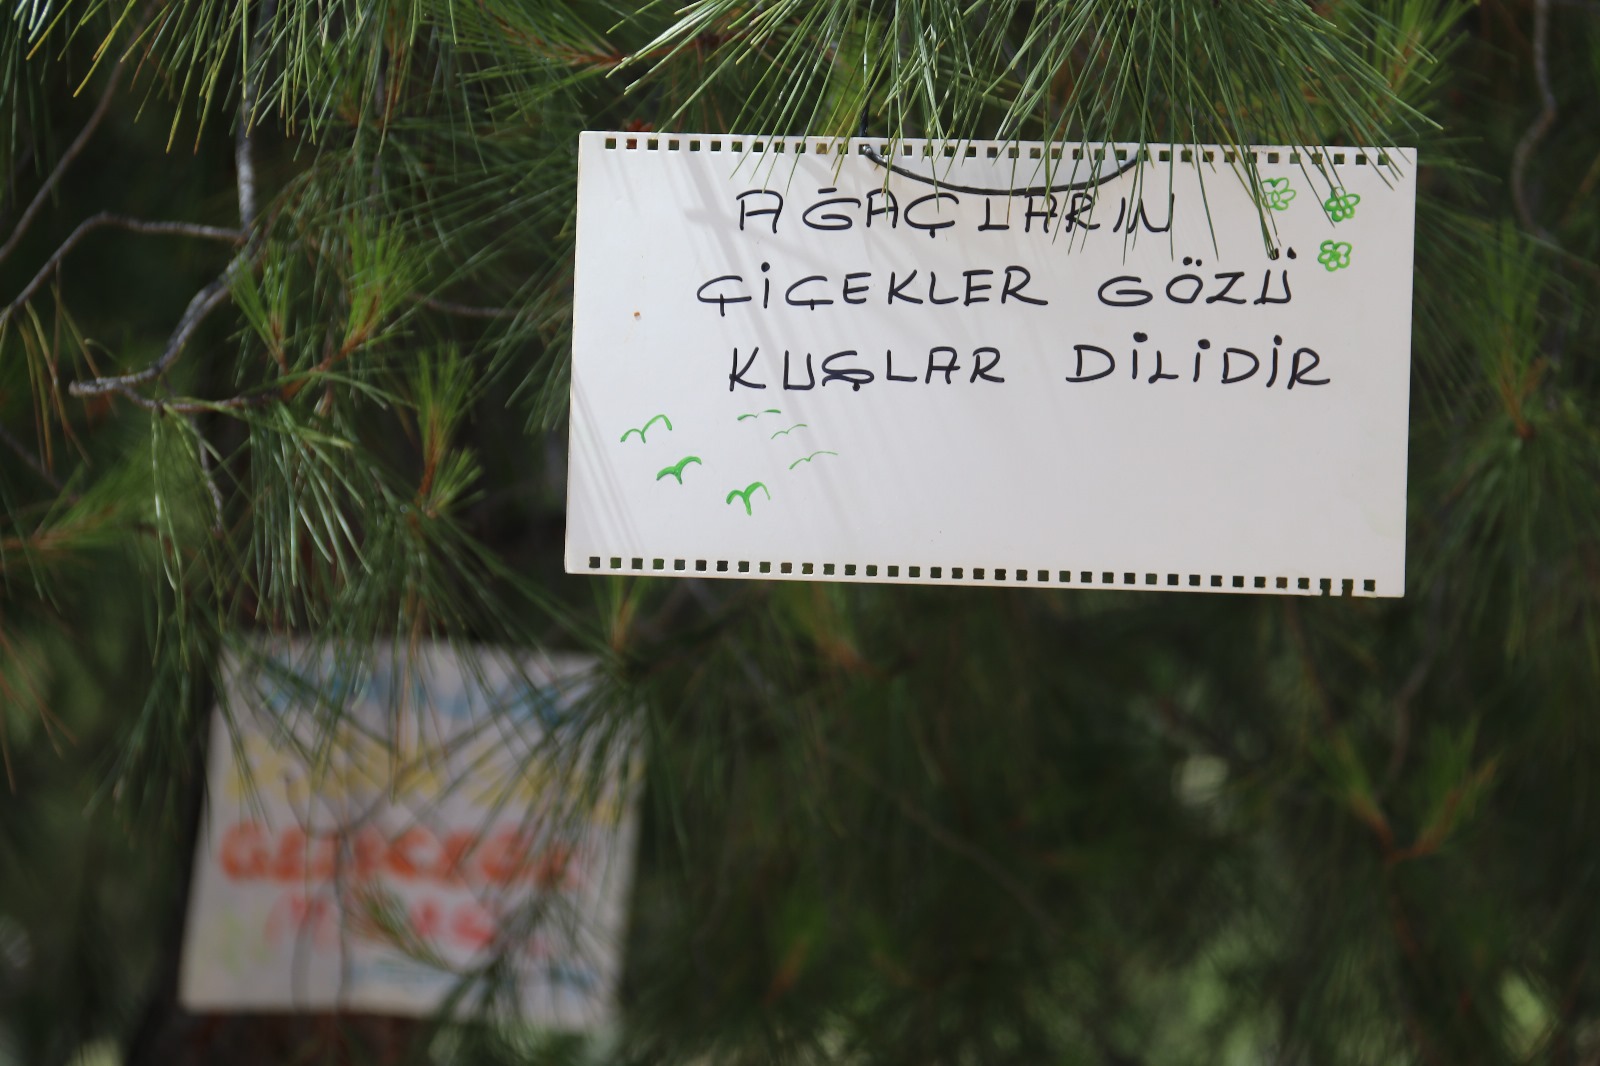 AĞAÇLARIN
ÇİÇEKLER GÖZÜ
KUŞLAR DİLİDİR